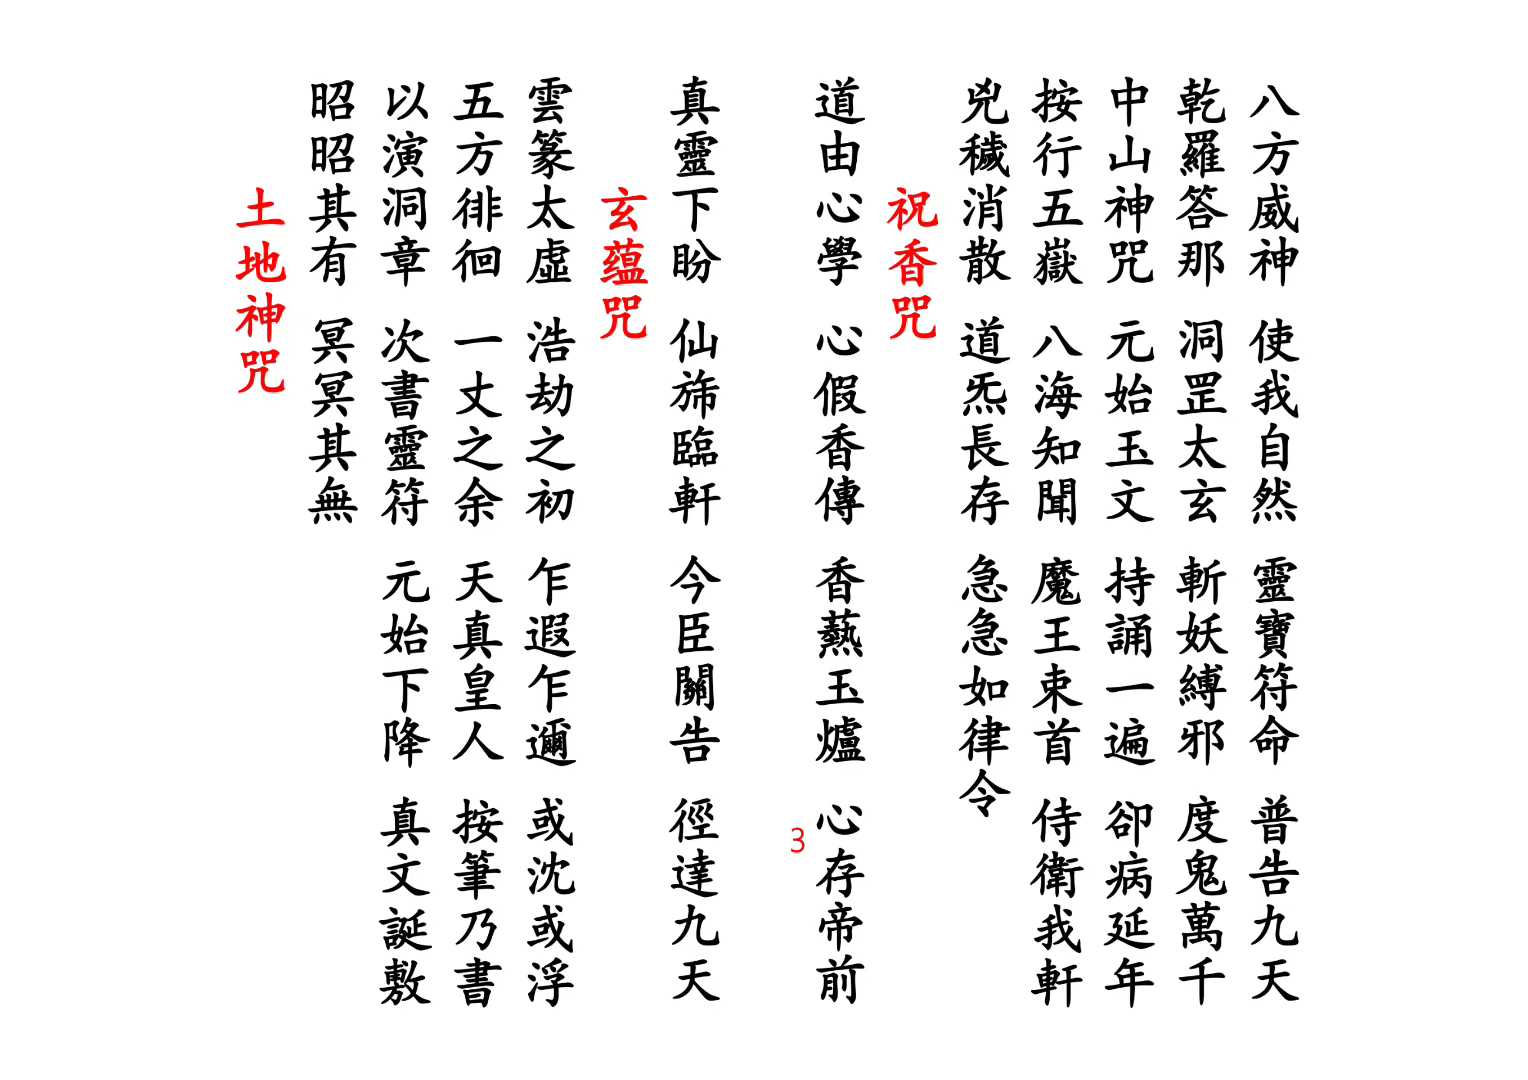 八方威神 使我自然 靈寶符命 普告九天
乾羅答那 洞罡太玄 斬妖縛邪 度鬼萬千
中山神咒 元始玉文 持誦一遍 卻病延年
按行五嶽 八海知聞 魔王束首 侍衛我軒
兇穢消散 道炁長存 急急如律令
祝香咒
道由心學 心假香傳 香爇玉爐 心存帝前
真靈下盼 仙旆臨軒 今臣關告 徑達九天
玄蘊咒
雲篆太虛 浩劫之初 乍遐乍邇 或沈或浮
五方徘徊 一丈之余 天真皇人 按筆乃書
以演洞章 次書靈符 元始下降 真文誕敷
昭昭其有 冥冥其無
土地神咒
3